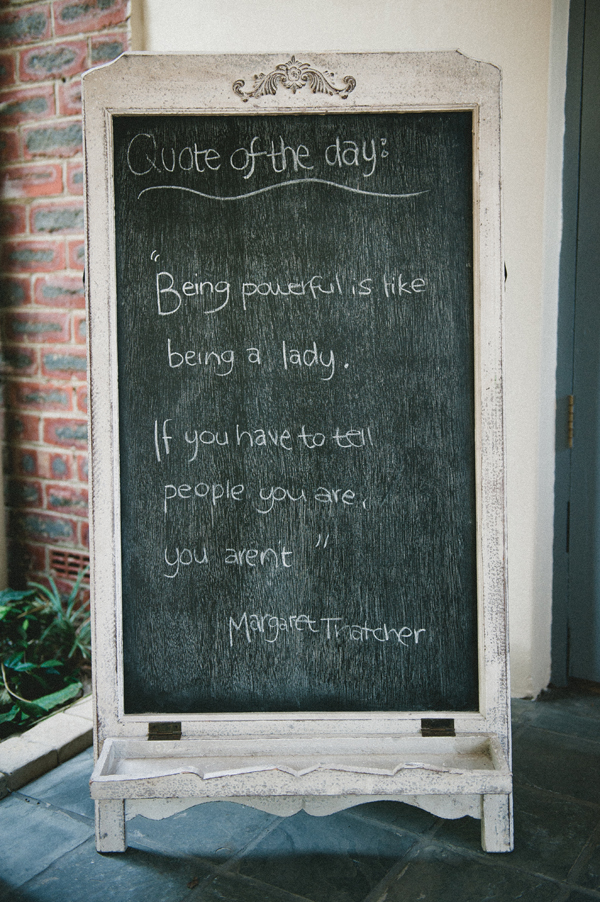 Quote of the day:
"Being powerful is like
being a lady.
If you have to tell
people you are,
you arent"
Margaret Thatcher